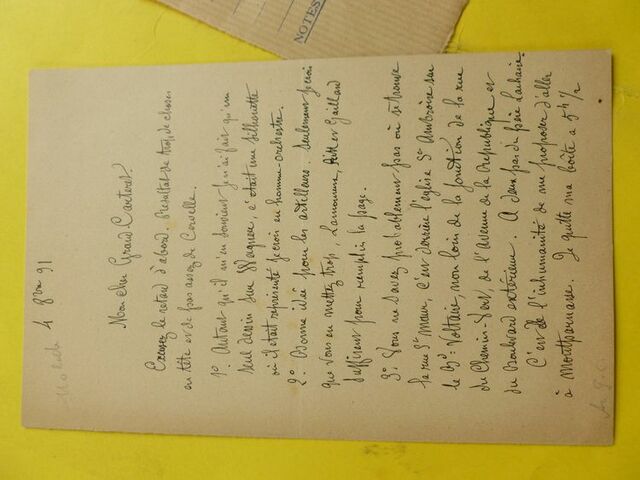 NOTES
Moloch
4 9bre 91
Mon cher Grand-Carteret
Excusez le retard d'abord. Résultat de trop de choses
en tête et de pas assez de cervelle.
1° Autant qu'il m'en souvient je n'ai fait qu'un
seul dessin sur Wagner, c'était une silhouette
où il était représenté je crois en homme-orchestre.
2° Bonne idée pour les artilleurs. Seulement je crois
que vous en mettez trop, Lamoureux, et Gailhard
suffisent pour remplir la page.
3° Vous ne savez probablement pas où se trouve
la rue St Maur, c'est derrière l'église St Ambroise sur
le Bd Voltaire, non loin de la jonction de la rue
du Chemin-Vert, de l'Avenue de la République et
du Boulevard extérieur. A deux pas du père Lachaise.
C'est de l'inhumanité de me proposer d'aller
à Montparnasse. Je quitte ma boîte à 5h 1/2